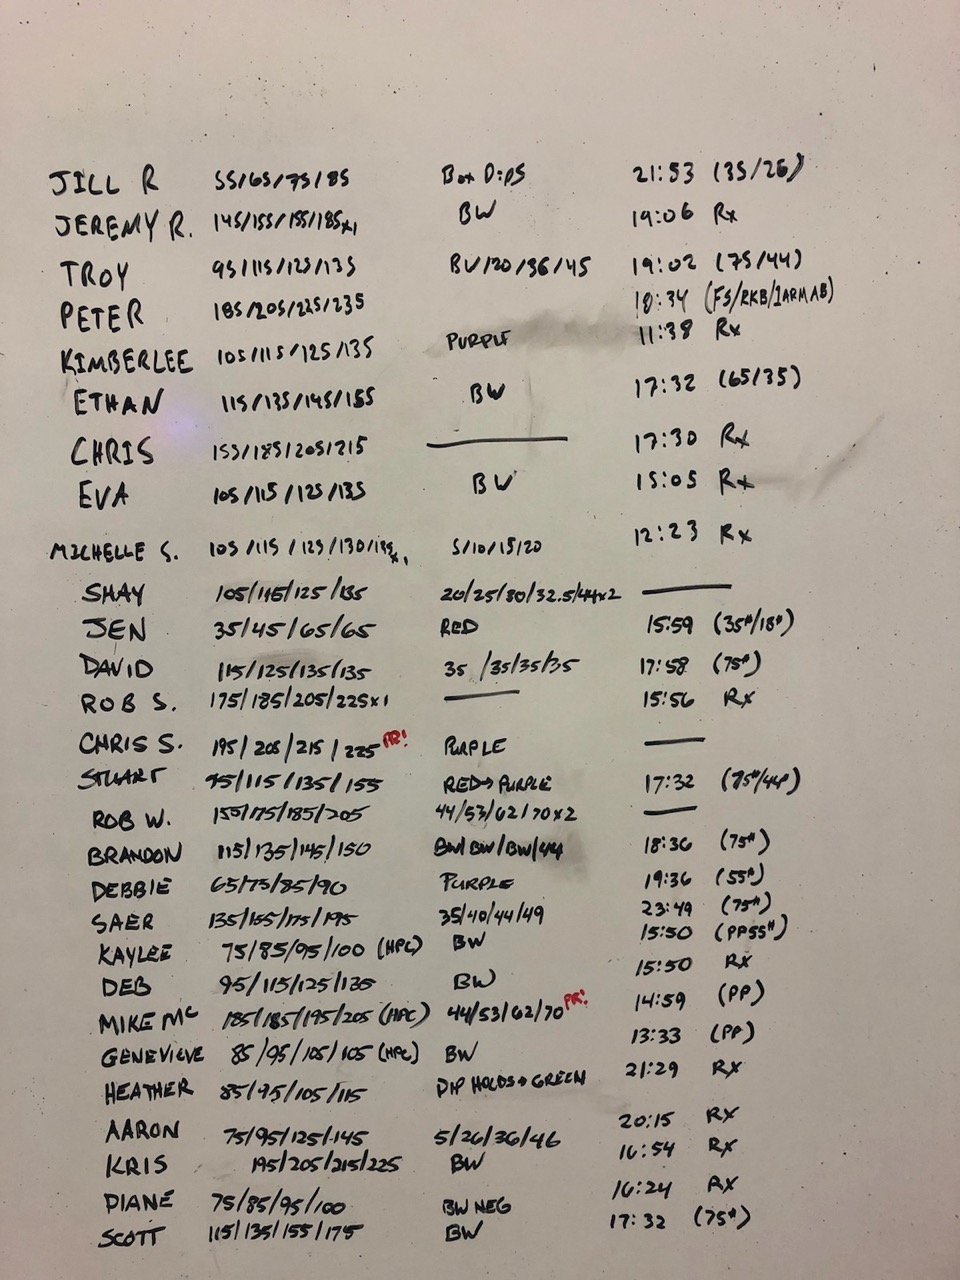 JILL R 55/65/75/85 Box Dips 21:53 (35/26)
JEREMY R. 145/155/155/185x1 BW 19:06 Rx
TROY 95/115/125/135 BW/20/36/45 19:02 (75/44)
PETER 185/205/225/235 18:34 (FS/RKB/1ARMAB)
KIMBERLEE 105/115/125/135 PURPLE 11:38 Rx
ETHAN 115/135/145/155 BW 17:32 (65/35)
CHRIS 155/185/205/215 — 17:30 Rx
EVA 105/115/125/135 BW 15:05 Rx
MICHELLE S. 105/115/125/130/135x1 5/10/15/20 12:23 Rx
SHAY 105/115/125/135 20/25/30/32.5/44x2 —
JEN 35/45/65/65 RED 15:59 (35#/18#)
DAVID 115/125/135/135 35/35/35/35 17:58 (75#)
ROB S. 175/185/205/225x1 — 15:56 RX
CHRIS S. 195/205/215/225 PR! PURPLE —
STUART 95/115/135/155 RED→PURPLE 17:32 (75#/44#)
ROB W. 155/175/185/205 44/53/62/70x2 —
BRANDON 115/135/145/150 BW/BW/BW/44 18:36 (75#)
DEBBIE 65/75/85/90 PURPLE 19:36 (55#)
SAER 135/155/175/195 35/40/44/49 23:49 (75#)
KAYLEE 75/85/95/100 (HPC) BW 15:50 (PP55#)
DEB 95/115/125/130 BW 15:50 RX
MIKE Mc 185/185/195/205 (HPC) 44/53/62/70 PR! 14:59 (PP)
GENEVIEVE 85/95/105/105 (HPC) BW 13:33 (PP)
HEATHER 85/95/105/115 DIP HOLDS→GREEN 21:29 RX
AARON 75/95/125/145 5/26/36/46 20:15 RX
KRIS 195/205/215/225 BW 16:54 RX
DIANE 75/85/95/100 BW NEG 16:24 RX
SCOTT 115/135/155/175 BW 17:32 (75#)